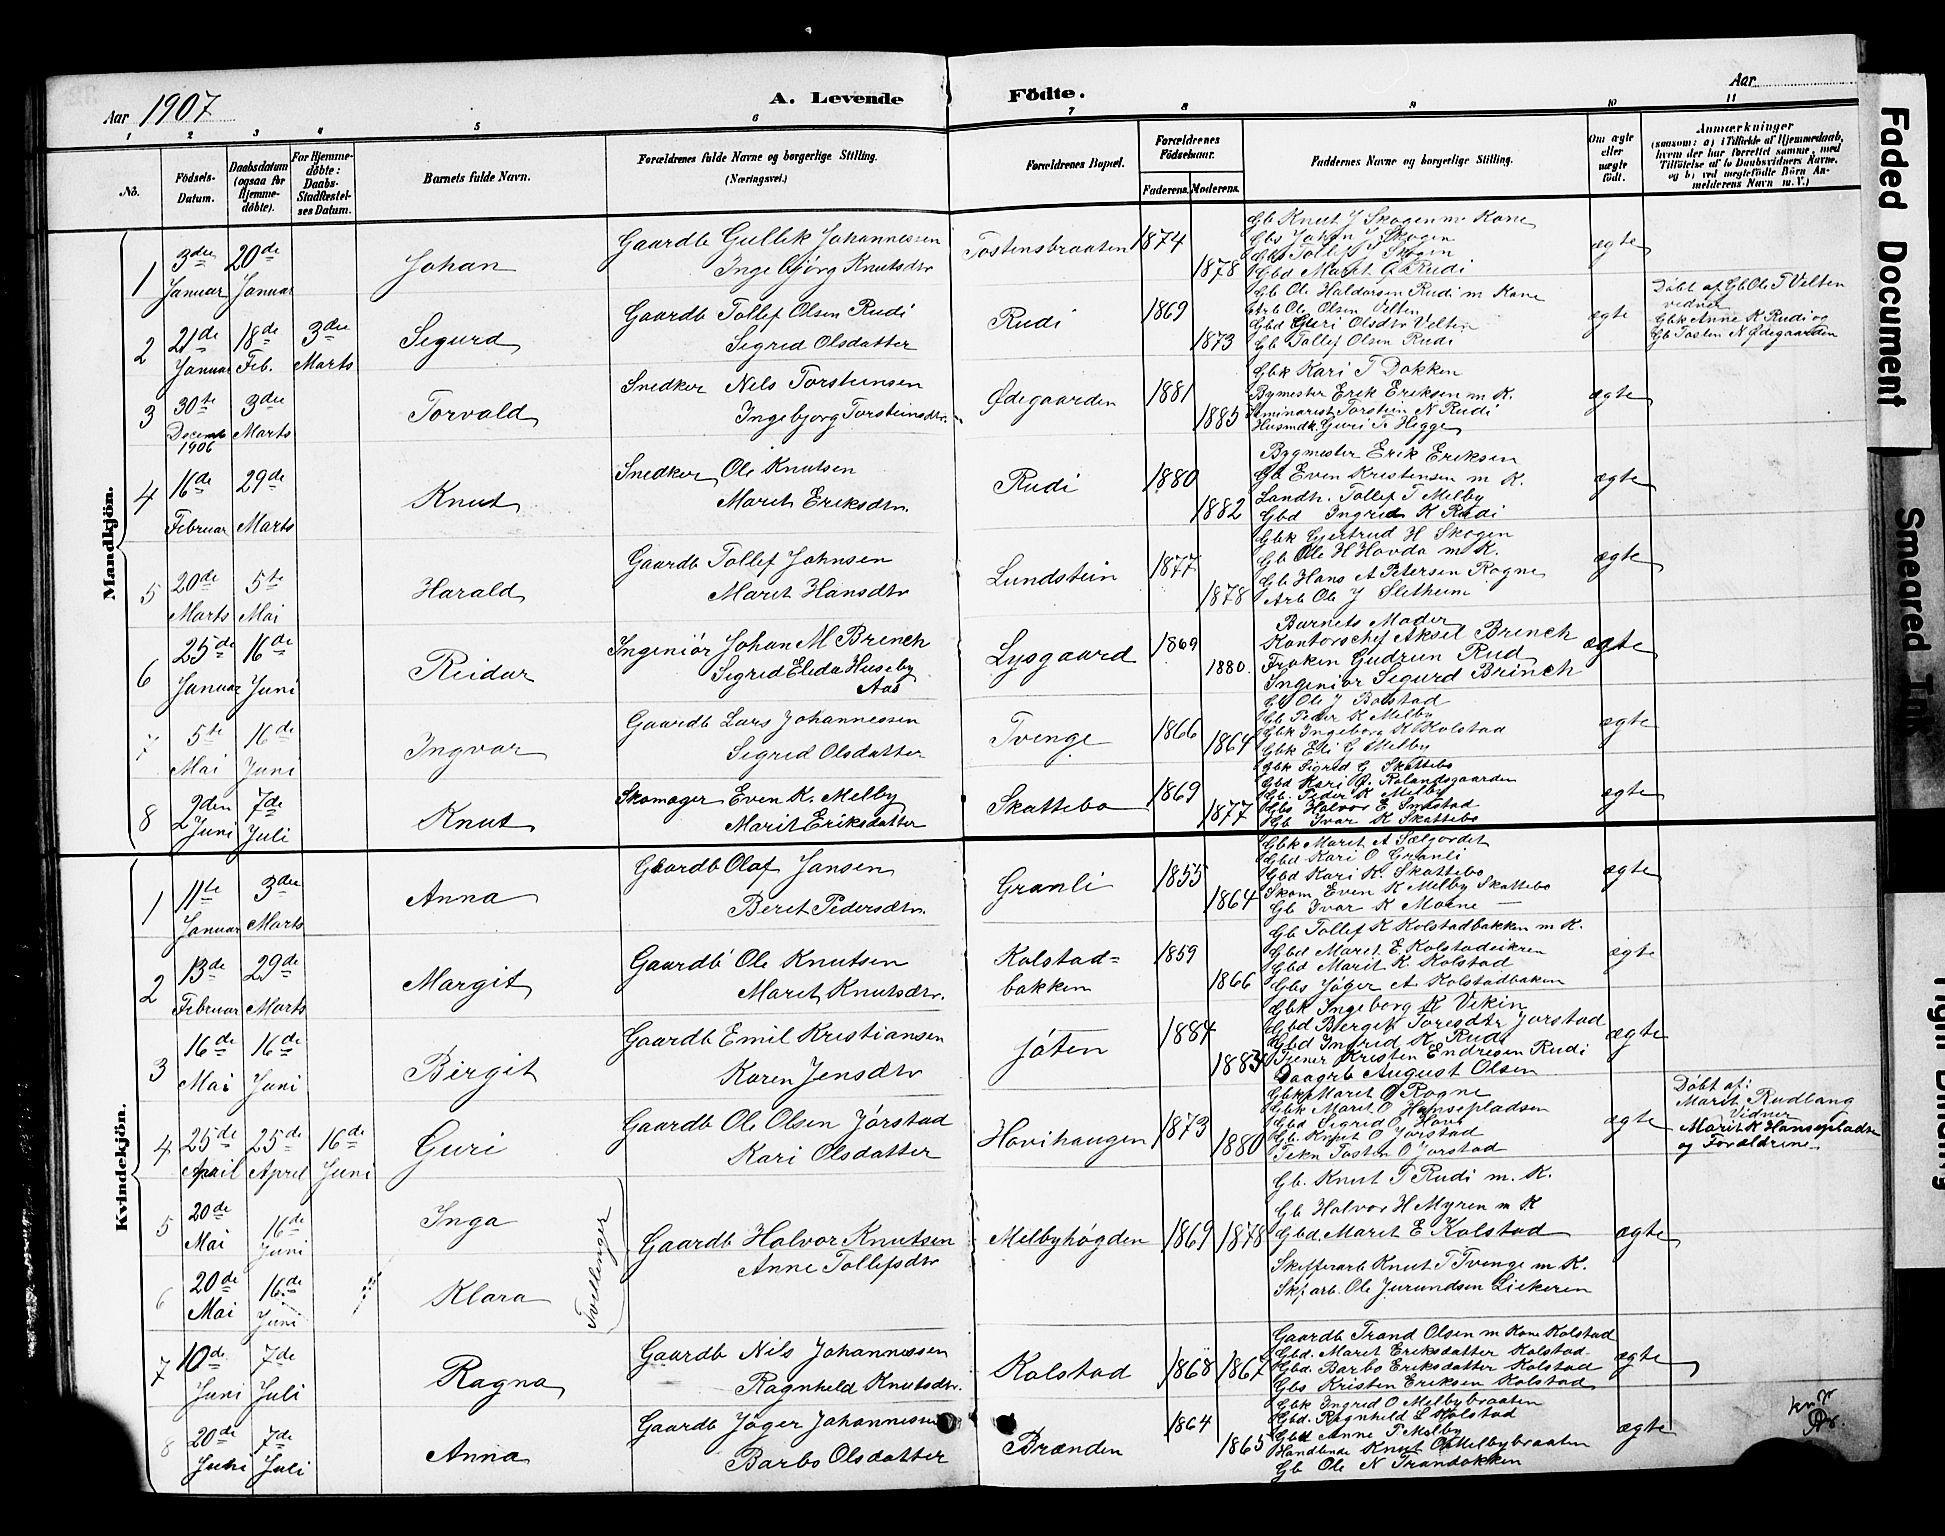 Aar 1907
A. Levende Födte.
Aar
1 2 3 4 5 6 7 8 9 10 11
No. Födsels-Datum. Daabsdatum (ogsaa for Hjemme-döbte). For Hjemme-döbte: Daabs-Stadfæstel-ses Datum. Barnets fulde Navn. Forældrenes fulde Navne og borgerlige Stilling. (Næringsvei.) Forældrenes Bopæl. Forældrenes Födselsaar. Faderens. Moderens. Faddernes Navne og borgerlige Stilling. Om ægte eller uægte födt. Anmærkninger (saasom: a) i Tilfælde af Hjemmedaab, hvem der har forrettet samme, med Tilföielse af to Daabsvidners Navne, og b) ved uægtefödte Börn An-melderens Navn m. V.)
Mandkjön.
1 3die Januar 20de Januar Johan
Gaardb Gullik Johannessen
Ingebjörg Knutsdtr
Tostensbraaten 1874 1878
Gb Knut J Skogen m Kone
Gbs Johan J Skogen
Gbs Tollef J Skogen
Gbd Marit O Rudi
ægte
2 21de Januar 18de Feb. 3die Marts Sigurd
Gaardb Tollef Olsen Rudi
Sigrid Olsdatter
Rudi 1869 1873
Gb Ole Haldorsen Rudi m Kone
Arb Ole Olsen Velten
Gbd Guri Olsdtr Velten
Gb Tollef Olsen Rudi
ægte
Döbt af Gb Ole T Velten
vidner
Gbk Anne K Rudi og
Gb Tosten N Ödegaarden
3 30te Decemb 1906 3die Marts Torvald
Snedker Nils Torsteinsen
Ingebjorg Torsteinsdtr.
Ödegaarden 1881 1885
Gbk Kari T Dokken
Bymester Erik Eriksen m K.
Seminarist Torstein N Rudi
Husmdk. Guri T. Hegge
ægte
4 16de Februar 29de Marts Knut
Snedker Ole Knutsen
Marit Eriksdtr.
Rudi 1880 1882
Bygmester Erik Eriksen
Gb Even Kristensen m K.
Landh. Tollef T Melby
Gbd Ingrid K Rudi
ægte
5 20de Marts 5te Mai Harald
Gaardb Tollef Johnsen
Marit Hansdtr
Lundstein 1877 1878
Gbk Gjertrud H Skogen
Gb Ole H Hovda m K.
Gb Hans A Petersen Rogne
Arb Ole J Sletheim
ægte
6 25de Januar 16de Juni Reidar
Ingeniör Johan M Brinch
Sigrid Elida Huseby
Aas
Lysgaard 1869 1880.
Barnets Moder
Kontorschef Aksel Brinch
Frøken Gudrun Rud
Ingeniör Sigurd Brinch
ægte
7 5te Mai 16de Juni Ingvar
Gaardb Lars Johannessen
Sigrid Olsdatter
Tvenge 1866 1864
Gb Ole J Bolstad
Gb Peder K Melby
Gbk Ingeborg K Kolstad
Gbk Eli G Melby
ægte
8 2den Juni 7de Juli Knut
Skomager Even K. Melby
Marit Eriksdatter
Skattebo 1869 1877
Gbk Sigrid G Skattebo
Gbd Kari O. Rolandsgaarden
Gb. Peder K Melby
Gbs Halvor E
Gb Ivar K Skattebo
ægte
Kvindekjön.
1 11te Januar 3die Marts Anna
Gaardb Olaf Jansen
Berit Pedersdtr.
Granli 1855 1864
Gbk Marit A Sæljordet
Gbd Kari O Granli
Gbd Kari K. Skattebo
Skom Even K Melby Skattebo
Gb Ivar K Moene
ægte
2 13de Februar 29de Marts Margit
Gaardb Ole Knutsen
Marit Knutsdtr.
Kolstad=
bakken 1859 1866
Gb Tollef K Kolstadbakken m K.
Gbd Marit E Kolstadeikren
Gbd Marit K. Kolstad
Gbs Jöger A Kolstadbaken
ægte
3 16de Mai 16de Juni Birgit
Gaardb Emil Kristiansen
Karen Jensdtr
Jöten 1884 1883
Gbk Ingeborg K Vikin
Gbd Bergit Toresdtr Jorstad
Gbd Ingrid K Rudi
Tjener Kristen Endresen Rudi
Daagrb August Olsen
ægte
4 25de April 25de April 16de Juni Guri
Gaardb Ole Olsen Jörstad
Kari Olsdatter
Hovihaugen 1873 1880
Gbk Marit O Rogne
Gbk Marit O Hansepladsen
Gbd Sigrid O. Hovi
Gb. Knut O Jorstad
Tekn Tosten O Jorstad
ægte
Döbt af:
Marit Rudbang
Vidner
Marit K Hansepladsn
og Forældrene
5 20de Mai 16de Juni Inga
6 20de Mai 16de Juni Klara
Tvillinger
Gaardb Halvor Knutsen
Anne Tollefsdtr
Melbyhögden 1869 1878
Gb. Knut T Rudi m. K.
Gb Halvor H Myren m K
Gbd. Marit E Kolstad
Skifferarb Knut T Tvenge m K.
Skf arb. Ole Jurundsen Liekeren
ægte
7 10de Juni 7de Juli Ragna
Gaardb Nils Johannessen
Ragnhild Knutsdtr.
Kolstad 1868 1867
Gaardb Trand Olsen m Kone Kolstad
Gbd. Marit Eriksdatter Kolstad
Gbd. Barbo Eriksdatter Kolstad
Gbs Kristen Eriksen Kolstad
ægte
8 20de Juni 7de Juli Anna
Gaardb Jöger Johannessen
Barbo Olsdatter
Brænden 1864 1865
Gbk Ingrid O Melbybraaten
Gbd. Ragnhild L Kolstad
Gbd Anne T Melby
Handlende Knut O Melbybraaten
Gb Ole N Trandokken
ægte
Faded Document
Smeared Ink
Tight Binding